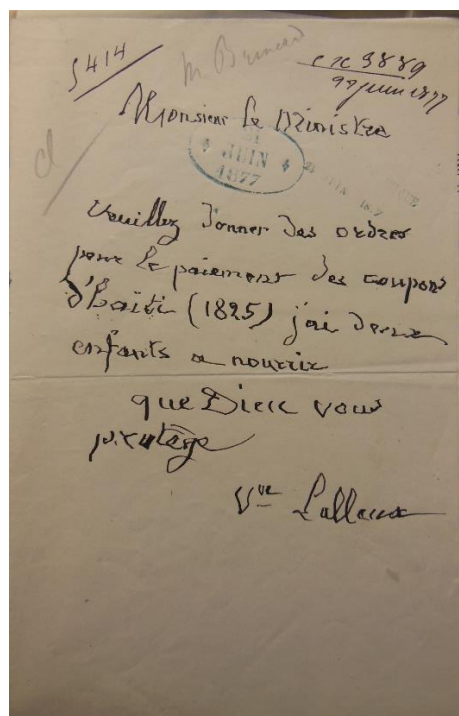 5414
M Brincard
ex 9889
Monsieur le Ministre
21
JUIN
1877
Veuillez donner des ordres
pour le paiement des coupons
d'Haïti (1825) j'ai deux
enfants a nourrir
que Dieu vous
protège
Vve Lalleur